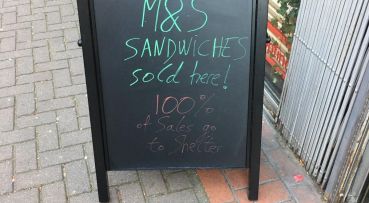 M&S
SANDWICHES
sold here!
100%
of Sales go
to Shelter